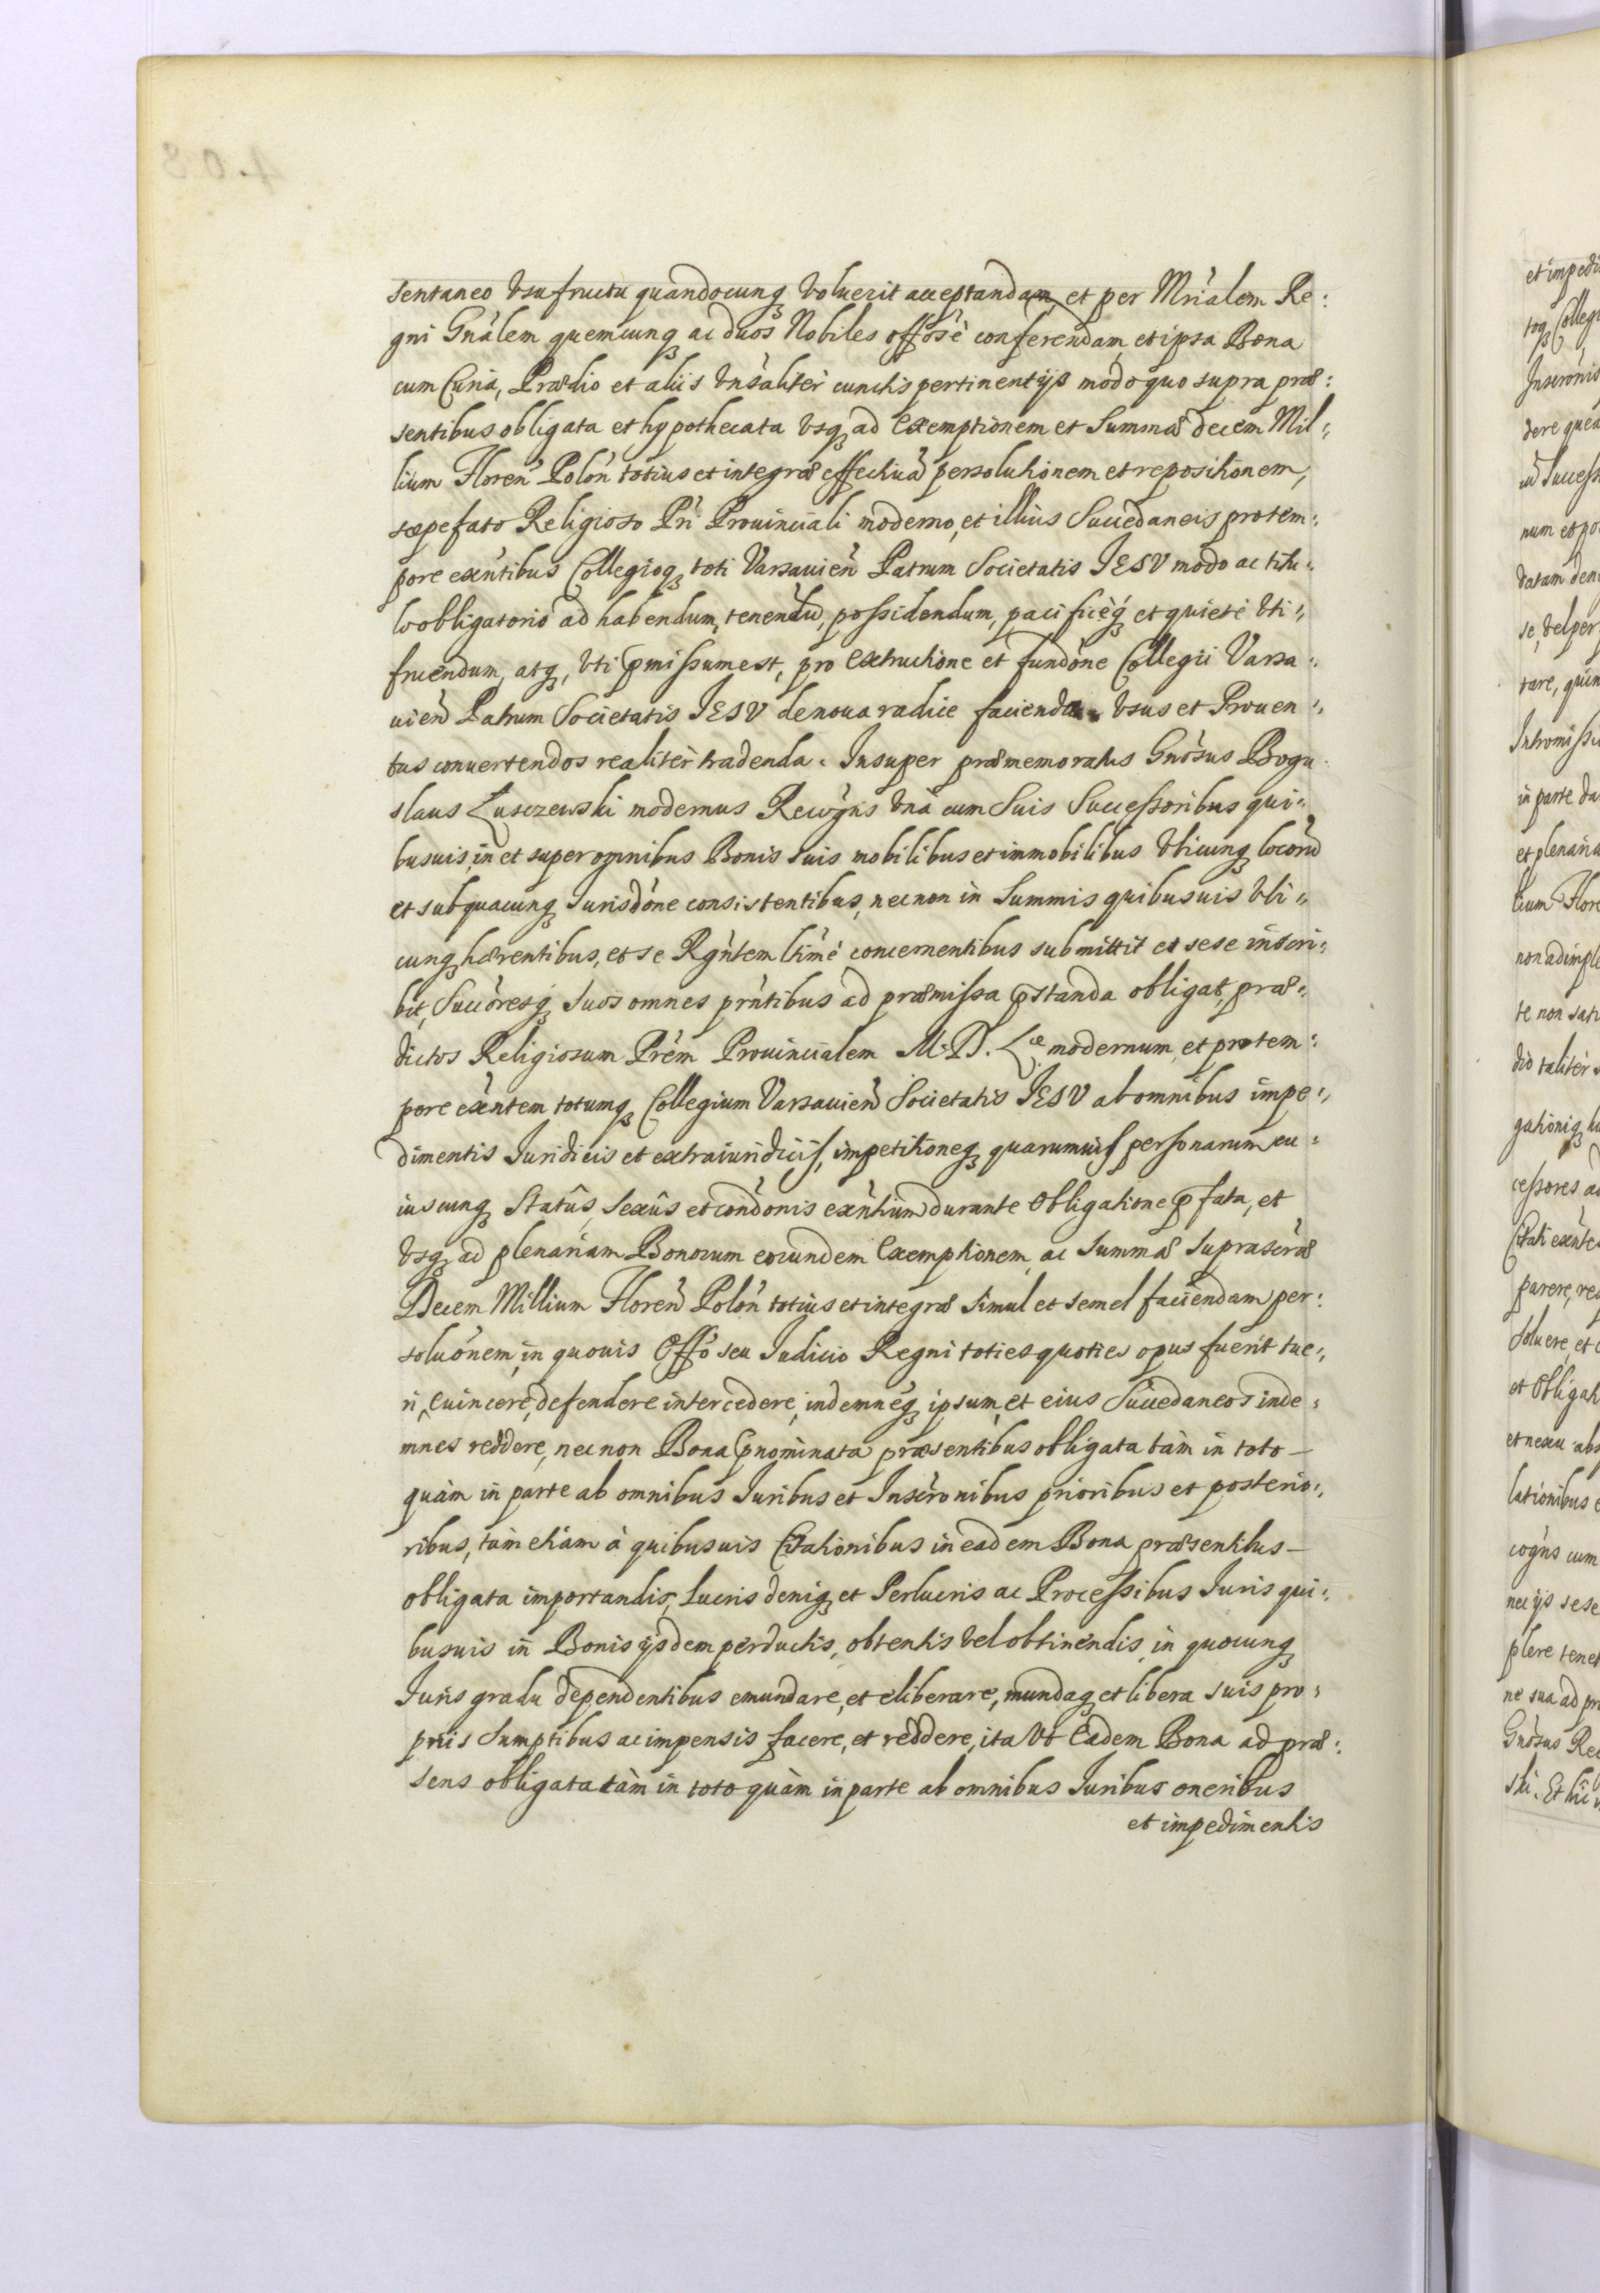 sentaneo vsufructu quandocunq voluerit acceptandam et per Mriàlem Re:
gni Gnàlem quemcunq ac duos Nobiles offosè conferendam, et ipsa Bona
cum Curia, Prædio et aliis vnsàlitèr cunctis pertinentijs modo quo supra præ:
sentibus obligata et hypothecata vsq ad Exemptionem et Summæ decem Mil:
lium Floren Polon totius et integræ effectiuã persolutionem et repositionem,
sæpefato Religioso Pri Prouinciali moderno, et illius Succedaneis pro tem:
pore exntibus Collegioq toti Varsauien Patrum Societatis IESV modo ac titu:
lo obligatorio ad habendum, tenendũ, possidendum, pacificèq et quietè vti:
fruendum, atq, vti pmissum est, pro Extructione et fundòne Collegii Varsa:
uien Patrum Societatis IESV de noua radice facienda vsus et Prouen:
tus conuertendos realitèr tradenda. Insuper præmemoratus Gnòsus Bogu
slaus Łusczewski modernus Recògns vnà cum Suis Successoribus qui:
busuis, in et super omnibus Bonis suis mobilibus et immobilibus vbicunq locorũ
et sub quacunq Iurisdòne consistentibus, nec non in Summis quibusuis vbi:
cunq hærentibus, et se Rgntem ltimè concernentibus submittit et sese inscri:
bit, Succòresq, suos omnes prntibus ad præmissa pstanda obligat, præ:
dictos Religiosum Prèm Prouincialem M. D. L.æ modernum, et pro tem:
pore exntem totumq Collegium Varsauien Societatis IESV ab omnibus impe:
dimentis Iuridicis et extraiuridicis, impetitioneq quarumuis personarum cu:
iuscunq Statûs, Sexûs et condònis exntium durante Obligatione pfata, et
vsq ad plenariam Bonorum eorundem Exemptionem, ac Summæ Suprascràe
Decem Millium Floren Polon totius et integræ simul et semel faciendam per:
soluònem, in quouis Offò seu Iudicio Regni toties quoties opus fuerit tue:
ri, euincere, defendere intercedere, indemneq ipsum, et eius Succedaneos inde:
mnes reddere, nec non Bona pnominata præsentibus obligata tàm in toto –
quàm in parte ab omnibus Iuribus et Inscrònibus prioribus et posterio:
ribus, tàm etiam à quibusuis Citationibus in eadem Bona præsentibus –
obligata importandis, Lucris deniq et Perlucris ac Processibus Iuris qui:
busuis in Bonis ijsdem perductis, obtentis vel obtinendis, in quocunq
Iuris gradu dependentibus emundare, et eliberare, mundaq et libera suis pro:
prijs Sumptibus ac impensis facere, et reddere, ita Vt Eadem Bona ad præ:
sens obligata tàm in toto quàm in parte ab omnibus Iuribus oneribus
et impedimentis